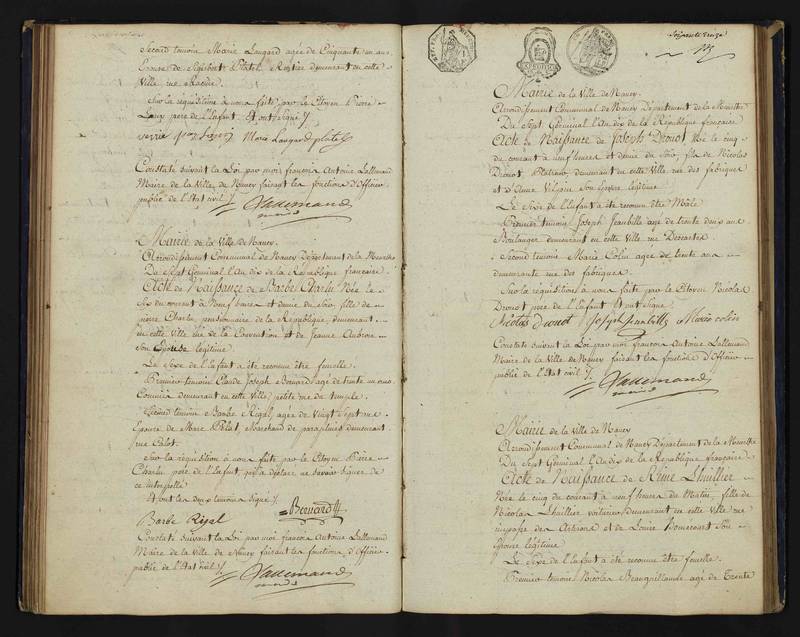 Second témoin Marie Laugard agée de Cinquante un ans
Epouse de Platel Rentier demeurant en cette
Ville rue Racine
Sur la réquisition à nous faite par le Citoyen Pierre
père de l'Enfant Et ont signé /.
Marie Laugard platel
Constaté suivant la Loi par moi françois Antoine Lallemand
Maire de la Ville de Nancy faisant les fonctions d'Officier
public de l'Etat civil /.
Lallemand
maire
Mairie de la Ville de Nancy.
Arrondissement Communal de Nancy Département de la Meurthe
Du Sept Germinal l'An dix de la République française
Acte de Naissance de Barbe Charlu Née le
Six du courant à Neuf heures et demie du soir, fille de
pierre Charlu, pensionnaire de la République, demeurant
en cette Ville rue de la Convention et de Jeanne Aubron
son Epouse légitime
Le Sexe de l'Enfant a été reconnu être femelle.
Premier témoin Claude Joseph Bernard agé de trente un ans
Commis demeurant en cette Ville, petite rue du temple.
Second témoin Barbe Rigal agée de Vingt Sept ans
Epouse de Marc Pilot Marchand de parapluies demeurant
rue Calot.
Sur la réquisition à nous faite par le Citoyen Pierre
Charlu père de l'Enfant, qui a déclaré ne savoir signer de
ce interpellé
Et ont les deux témoins signé /.
Bernard
Barbe Rigal
Constaté suivant la Loi par moi françois Antoine Lallemand
Maire de la Ville de Nancy faisant les fonctions d'Officier
public de l'Etat civil /.
Lallemand
maire
Soixante treize
Mairie de la Ville de Nancy.
Arrondissement Communal de Nancy Département de la Meurthe
Du Sept Germinal l'An dix de la République française
Acte de Naissance de Joseph Drouot Né le cinq
du courant à neuf heures et demie du Soir, fils de Nicolas
Drouot, demeurant en cette Ville rue des fabriques
et d'Anne son Epouse légitime
Le Sexe de l'Enfant a été reconnu être Mâle
Premier témoin Joseph Jeanbille agé de trente deux ans
Boulanger demeurant en cette Ville rue Descartes.
Second témoin Marie Colin agée de trente ans
demeurante rue des fabriques.
Sur la réquisition à nous faite par le Citoyen Nicolas
Drouot père de l'Enfant Et ont signé
Nicolas drouot Joseph Jeanbille Marie colin
Constaté suivant la Loi par moi françois Antoine Lallemand
Maire de la Ville de Nancy faisant les fonctions d'Officier
public de l'Etat civil /.
Lallemand
maire
Mairie de la Ville de Nancy
Arrondissement Communal de Nancy Département de la Meurthe
Du Sept Germinal l'An dix de la République française
Acte de Naissance de Reine Lhuillier
Née le cinq du courant à neuf heures du Matin, fille de
Nicolas Lhuillier voiturier, demeurant en cette Ville rue
des Artisans et de Louise Son
Epouse légitime
Le Sexe de l'Enfant a été reconnu être femelle.
Premier témoin Nicolas agé de Trente